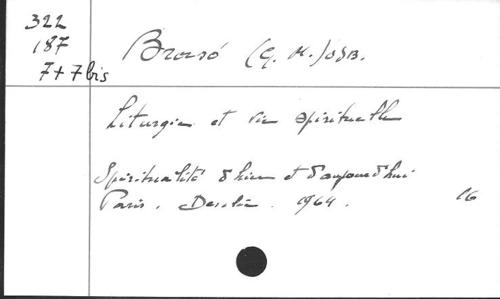 322
187
7+7bis
Brasó (G. M.) OSB.
Liturgie et vie spirituelle
Spiritualité d'hier et d'aujourd'hui
Paris. Desclée. 1964. 16